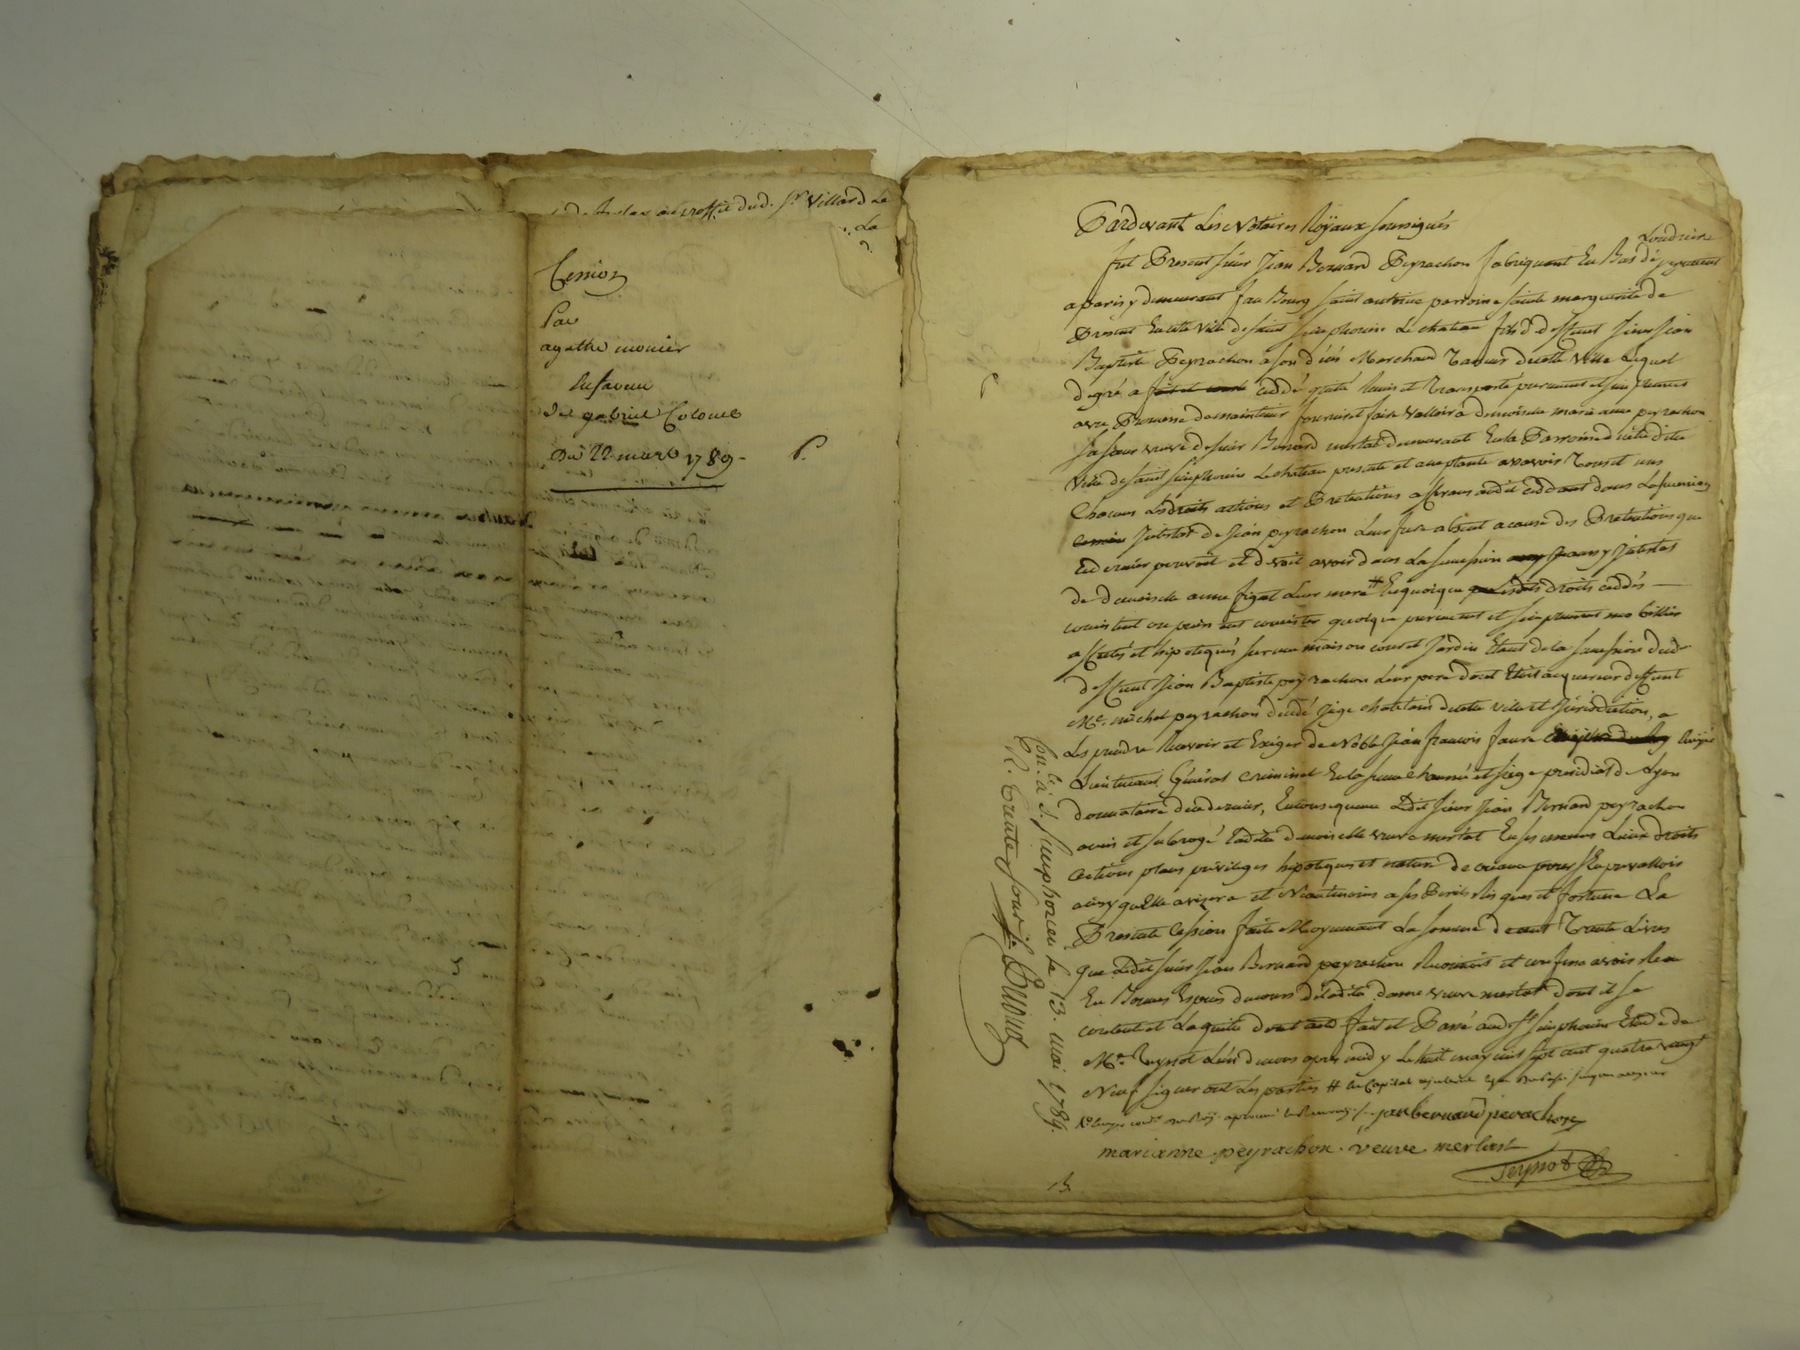 dud. Sr. Villard Le
La
Cession
Par
agathe monier
En faveur
De gabriel Colomb
Du 22 mars 1789.
Pardevant Les Notaires Royaux soussignés
fut Present sieur Jean Bernard Peyrachon fabriquant En Bas de
a paris y demeurant faubourg saint antoine parroisse sainte marguerite de
Present En cette ville de saint simphorien Le chateau fils de deffunt sieur Jean
Baptiste Peyrachon a son d'écés Marchand Taneur de cette ville Lequel
de gré a ceddé quitté Remis et Transporté purement et simplement
avec Promesse de maintenir fournir et faire valloir a demoiselle marie anne peyrachon
sa sœur veuve de sieur Benard merlat demeurant En la Parroisse de cette dite
ville de saint simphorien Le chateau presente et acceptante a savoir Tous et uns
Chacuns Les droits actions et Pretentions afferans audit ceddant dans La succession
de Jean peyrachon Leur frere absent a cause des Pretentions que
ce dernier pouvoit et devoit avoir dans La succession
de demoiselle anne figat Leur mere # En quoi que droits ceddés
consistent ou puissent consister quoique purement et simplement mobillier
affectés et hipotequés sur une maison cour et Jardin Etant de la succession dud.
deffunt Jean Baptiste peyrachon Leur pere dont Etoit acquereur deffunt
Me. michel peyrachon decedé Juge chatelain de cette ville et Jurisdiction, a
Les prendre Recevoir et Exiger de Noble Jean francois faure
Lieutenant Général Criminel En la senechaussée et siege presidial de Lyon
donnataire de ce dernier, En consequence Ledit sieur Jean Bernard peyrachon
a mis et subrogé Ladite demoiselle veuve merlat En ses memes Lieux droits
actions places privileges hipoteques et nature de creance pour s'En prevalloir
ainsy qu'Elle avisera et Neantmoins a ses Perils Risques et fortune La
Presente Cession faite Moyennant La somme de cent Trente Livres
que Ledit sieur Jean Bernard peyrachon Reconnoit et confesse avoir Reçu
En Bonnes Especes du cours de Ladite dame veuve merlat dont il se
contente et La quitte dont acte fait et Passé aud. St. simphorien Etude de
Me. Teyssot L'un de nous apres midy Le huit may mil sept cent quatre vingt
Neuf signeront Les parties #
jean bernard peirachon
marianne peyrachon veuve merlat
Teyssot
Cont.lé à S. simphorien le 13. mai 1789.
R. trente sous